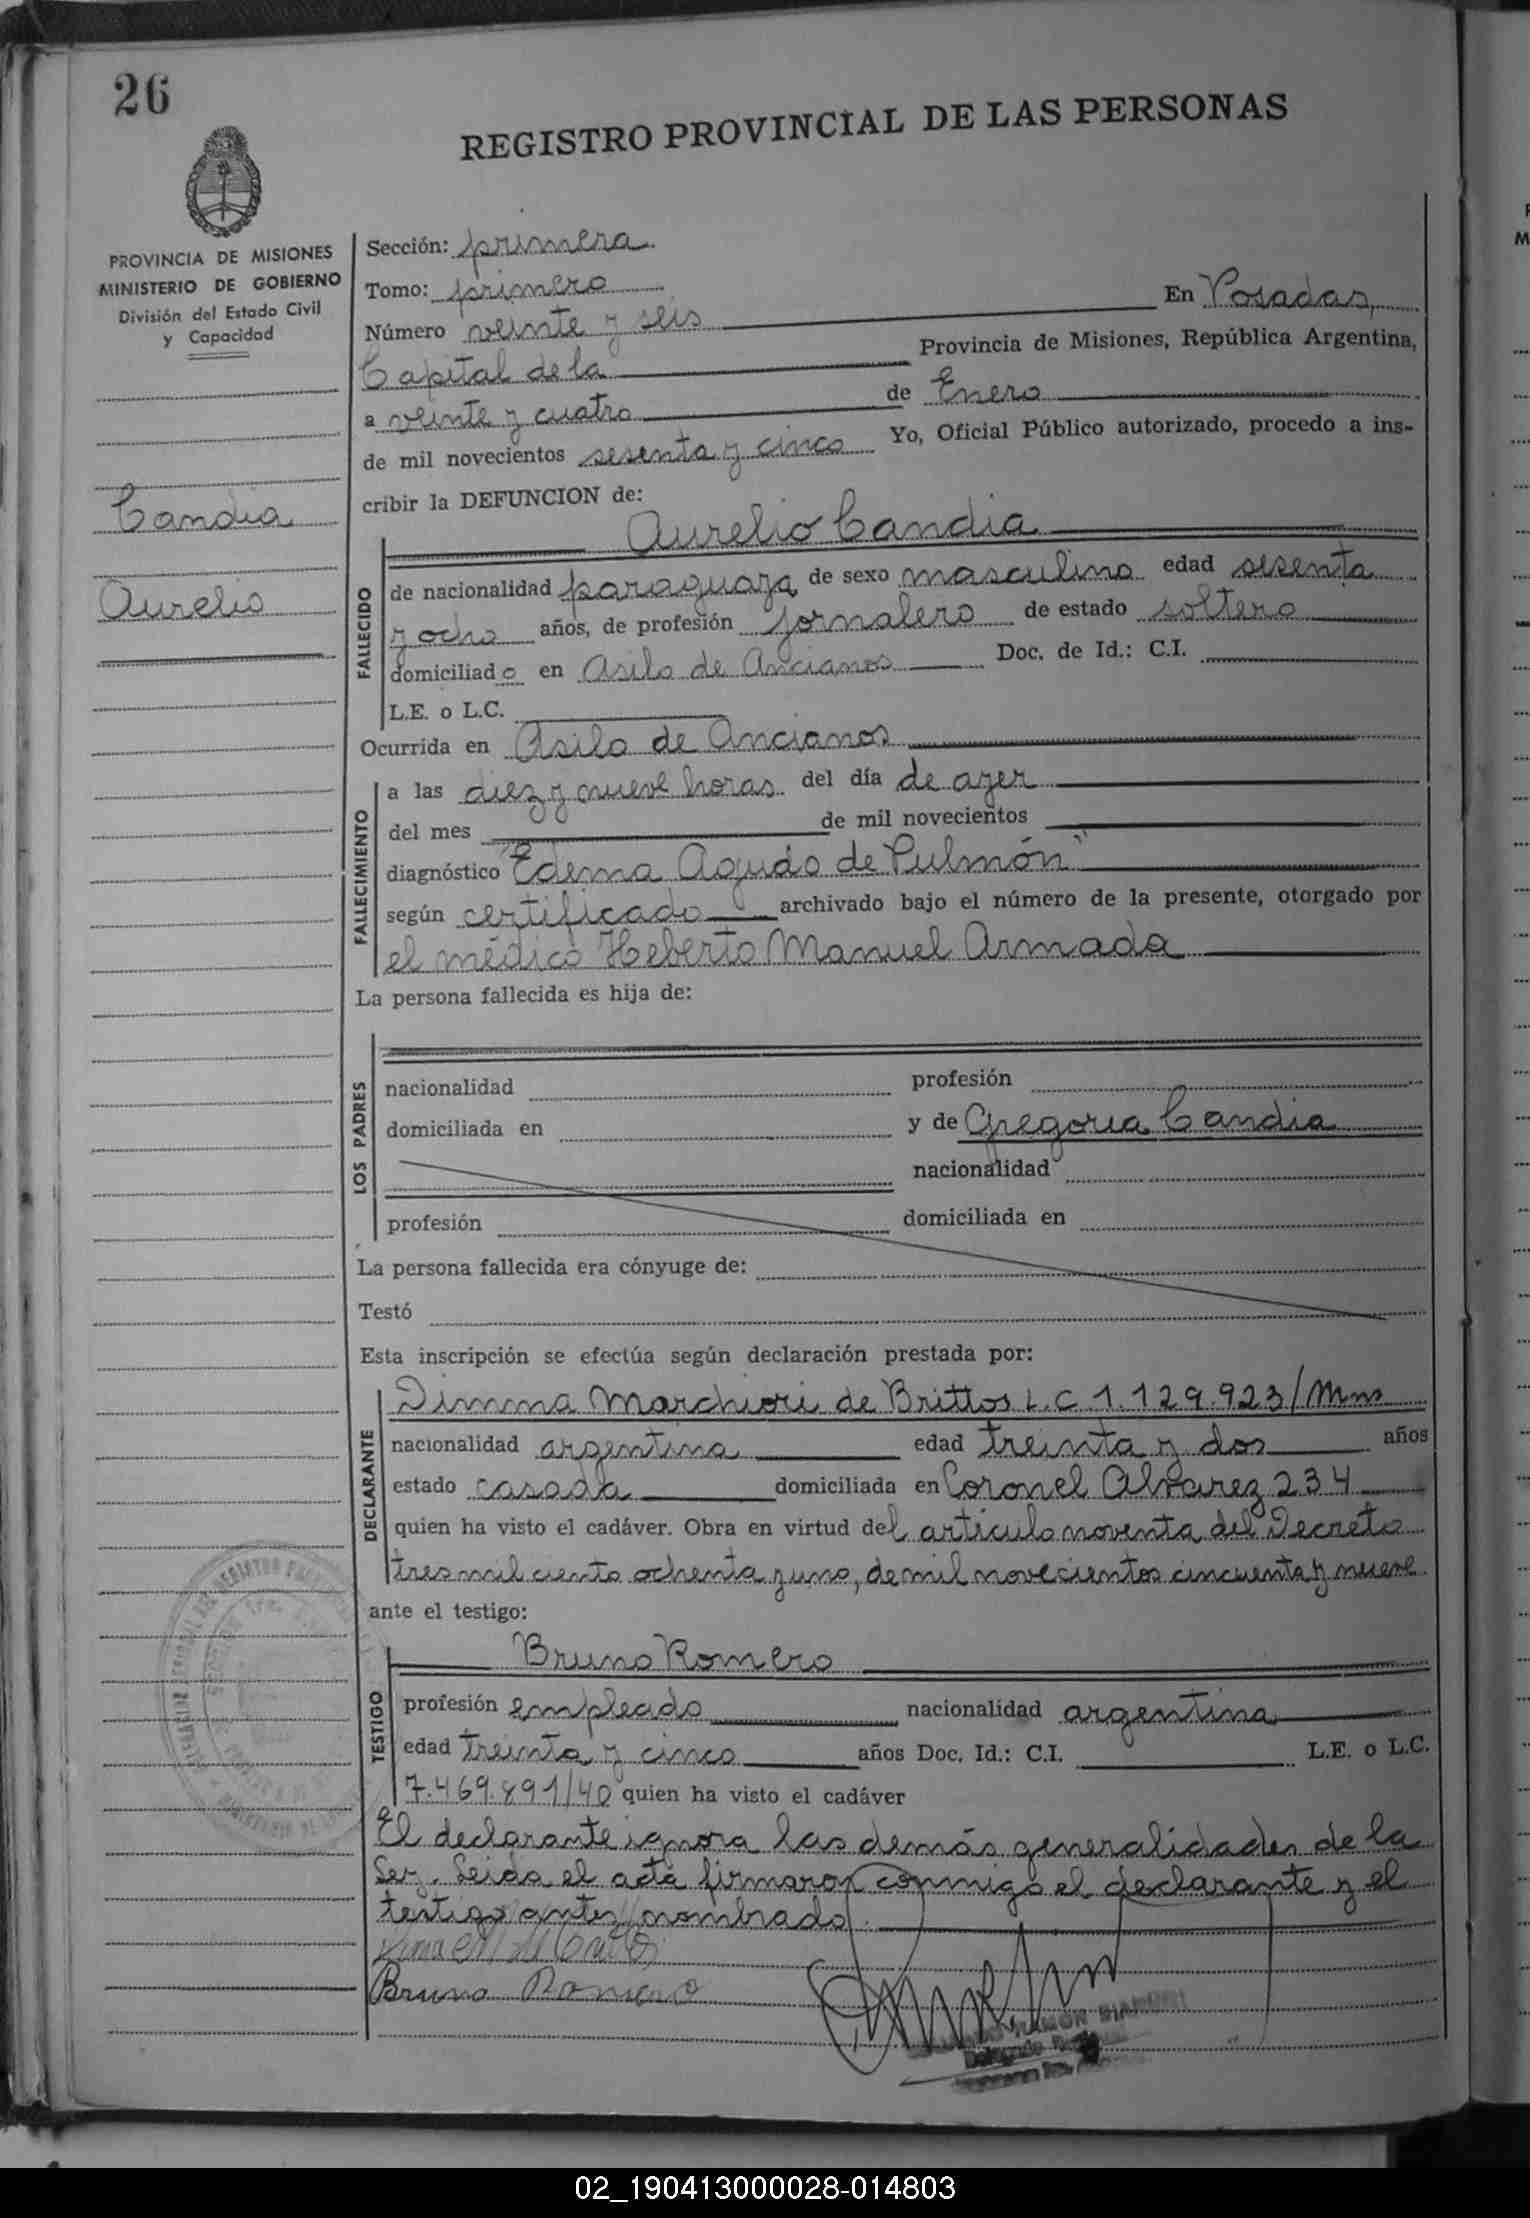 26
REGISTRO PROVINCIAL DE LAS PERSONAS
PROVINCIA DE MISIONES
MINISTERIO DE GOBIERNO
División del Estado Civil
y Capacidad
Candia
Aurelio
Sección: primera
Tomo: primero
Número veinte y seis En Posadas,
Capital de la Provincia de Misiones, República Argentina,
a veinte y cuatro de Enero
de mil novecientos sesenta y cinco Yo, Oficial Público autorizado, procedo a ins-
cribir la DEFUNCION de:
Aurelio Candia
FALLECIDO
de nacionalidad paraguaya de sexo masculino edad sesenta
y ocho años, de profesión jornalero de estado soltero
domiciliado en Asilo de Ancianos Doc. de Id.: C.I.
L.E. o L.C.
Ocurrida en Asilo de Ancianos
FALLECIMIENTO
a las diez y nueve horas del día de ayer
del mes de mil novecientos
diagnóstico "Edema Agudo de Pulmón"
según certificado archivado bajo el número de la presente, otorgado por
el médico Heberto Manuel Armada
La persona fallecida es hija de:
LOS PADRES
nacionalidad profesión
domiciliada en y de Gregoria Candia
nacionalidad
profesión domiciliada en
La persona fallecida era cónyuge de:
Testó
Esta inscripción se efectúa según declaración prestada por:
DECLARANTE
Dimma Marchiori de Brittos L.C 1.129.923/Mns
nacionalidad argentina edad treinta y dos años
estado casada domiciliada en Coronel Alvarez 234
quien ha visto el cadáver. Obra en virtud del artículo noventa del Decreto
tres mil ciento ochenta y uno, de mil novecientos cincuenta y nueve
ante el testigo:
TESTIGO
Bruno Romero
profesión empleado nacionalidad argentina
edad treinta y cinco años Doc. Id.: C.I. L.E. o L.C.
7.469.891/40 quien ha visto el cadáver
El declarante ignora las demás generalidades de la
Ley. Leida el acta firmaron conmigo el declarante y el
testigo antes nombrado.
Bruno Romero
RAMON
02_190413000028-014803